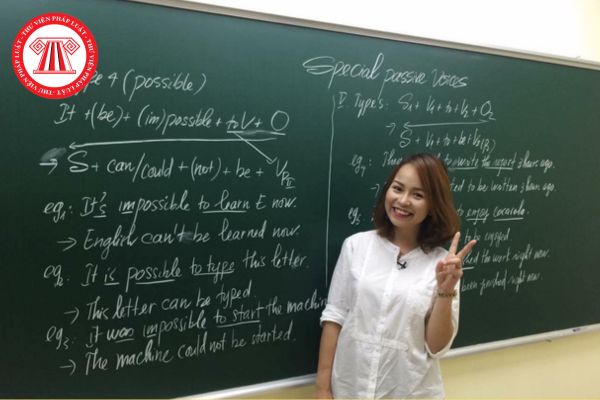 THƯ VIỆN PHÁP LUẬT
THƯ VIỆN PHÁP LUẬT
Type 4 (possible)
It + (be) + (im)possible + to V + O
→ S + can/could + (not) + be + VpII
eg1: It's impossible to learn E now.
→ English can't be learned now.
eg2: It is possible to type this letter.
→ This letter can be typed.
eg3: It was impossible to start the machine
→ The machine could not be started.
Special passive Voices
V. Type 5: S1 + V1 + to + V2 + O2
→ S + V1 + to + be + V3
eg1: to write the report 3 hours ago.
to be written 3 hours ago.
eg2: enjoy cocacola.
to be enjoyed.
the work right now.
been finished right now.